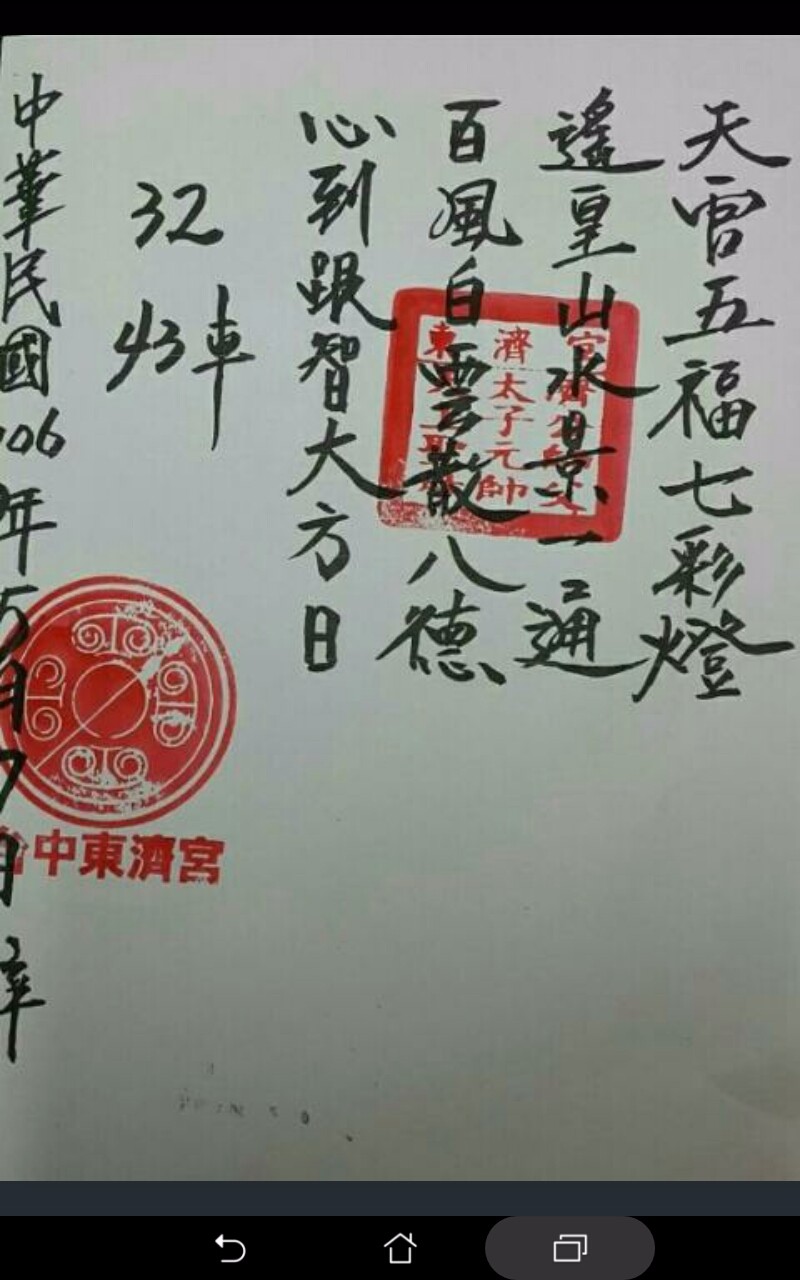 天官五福七彩燈
遙皇山水景一通
百風白雲散八德
心到跟智大方日
32
43車
中華民國106年5月7日
濟太子元帥
東
宮
中東濟宮